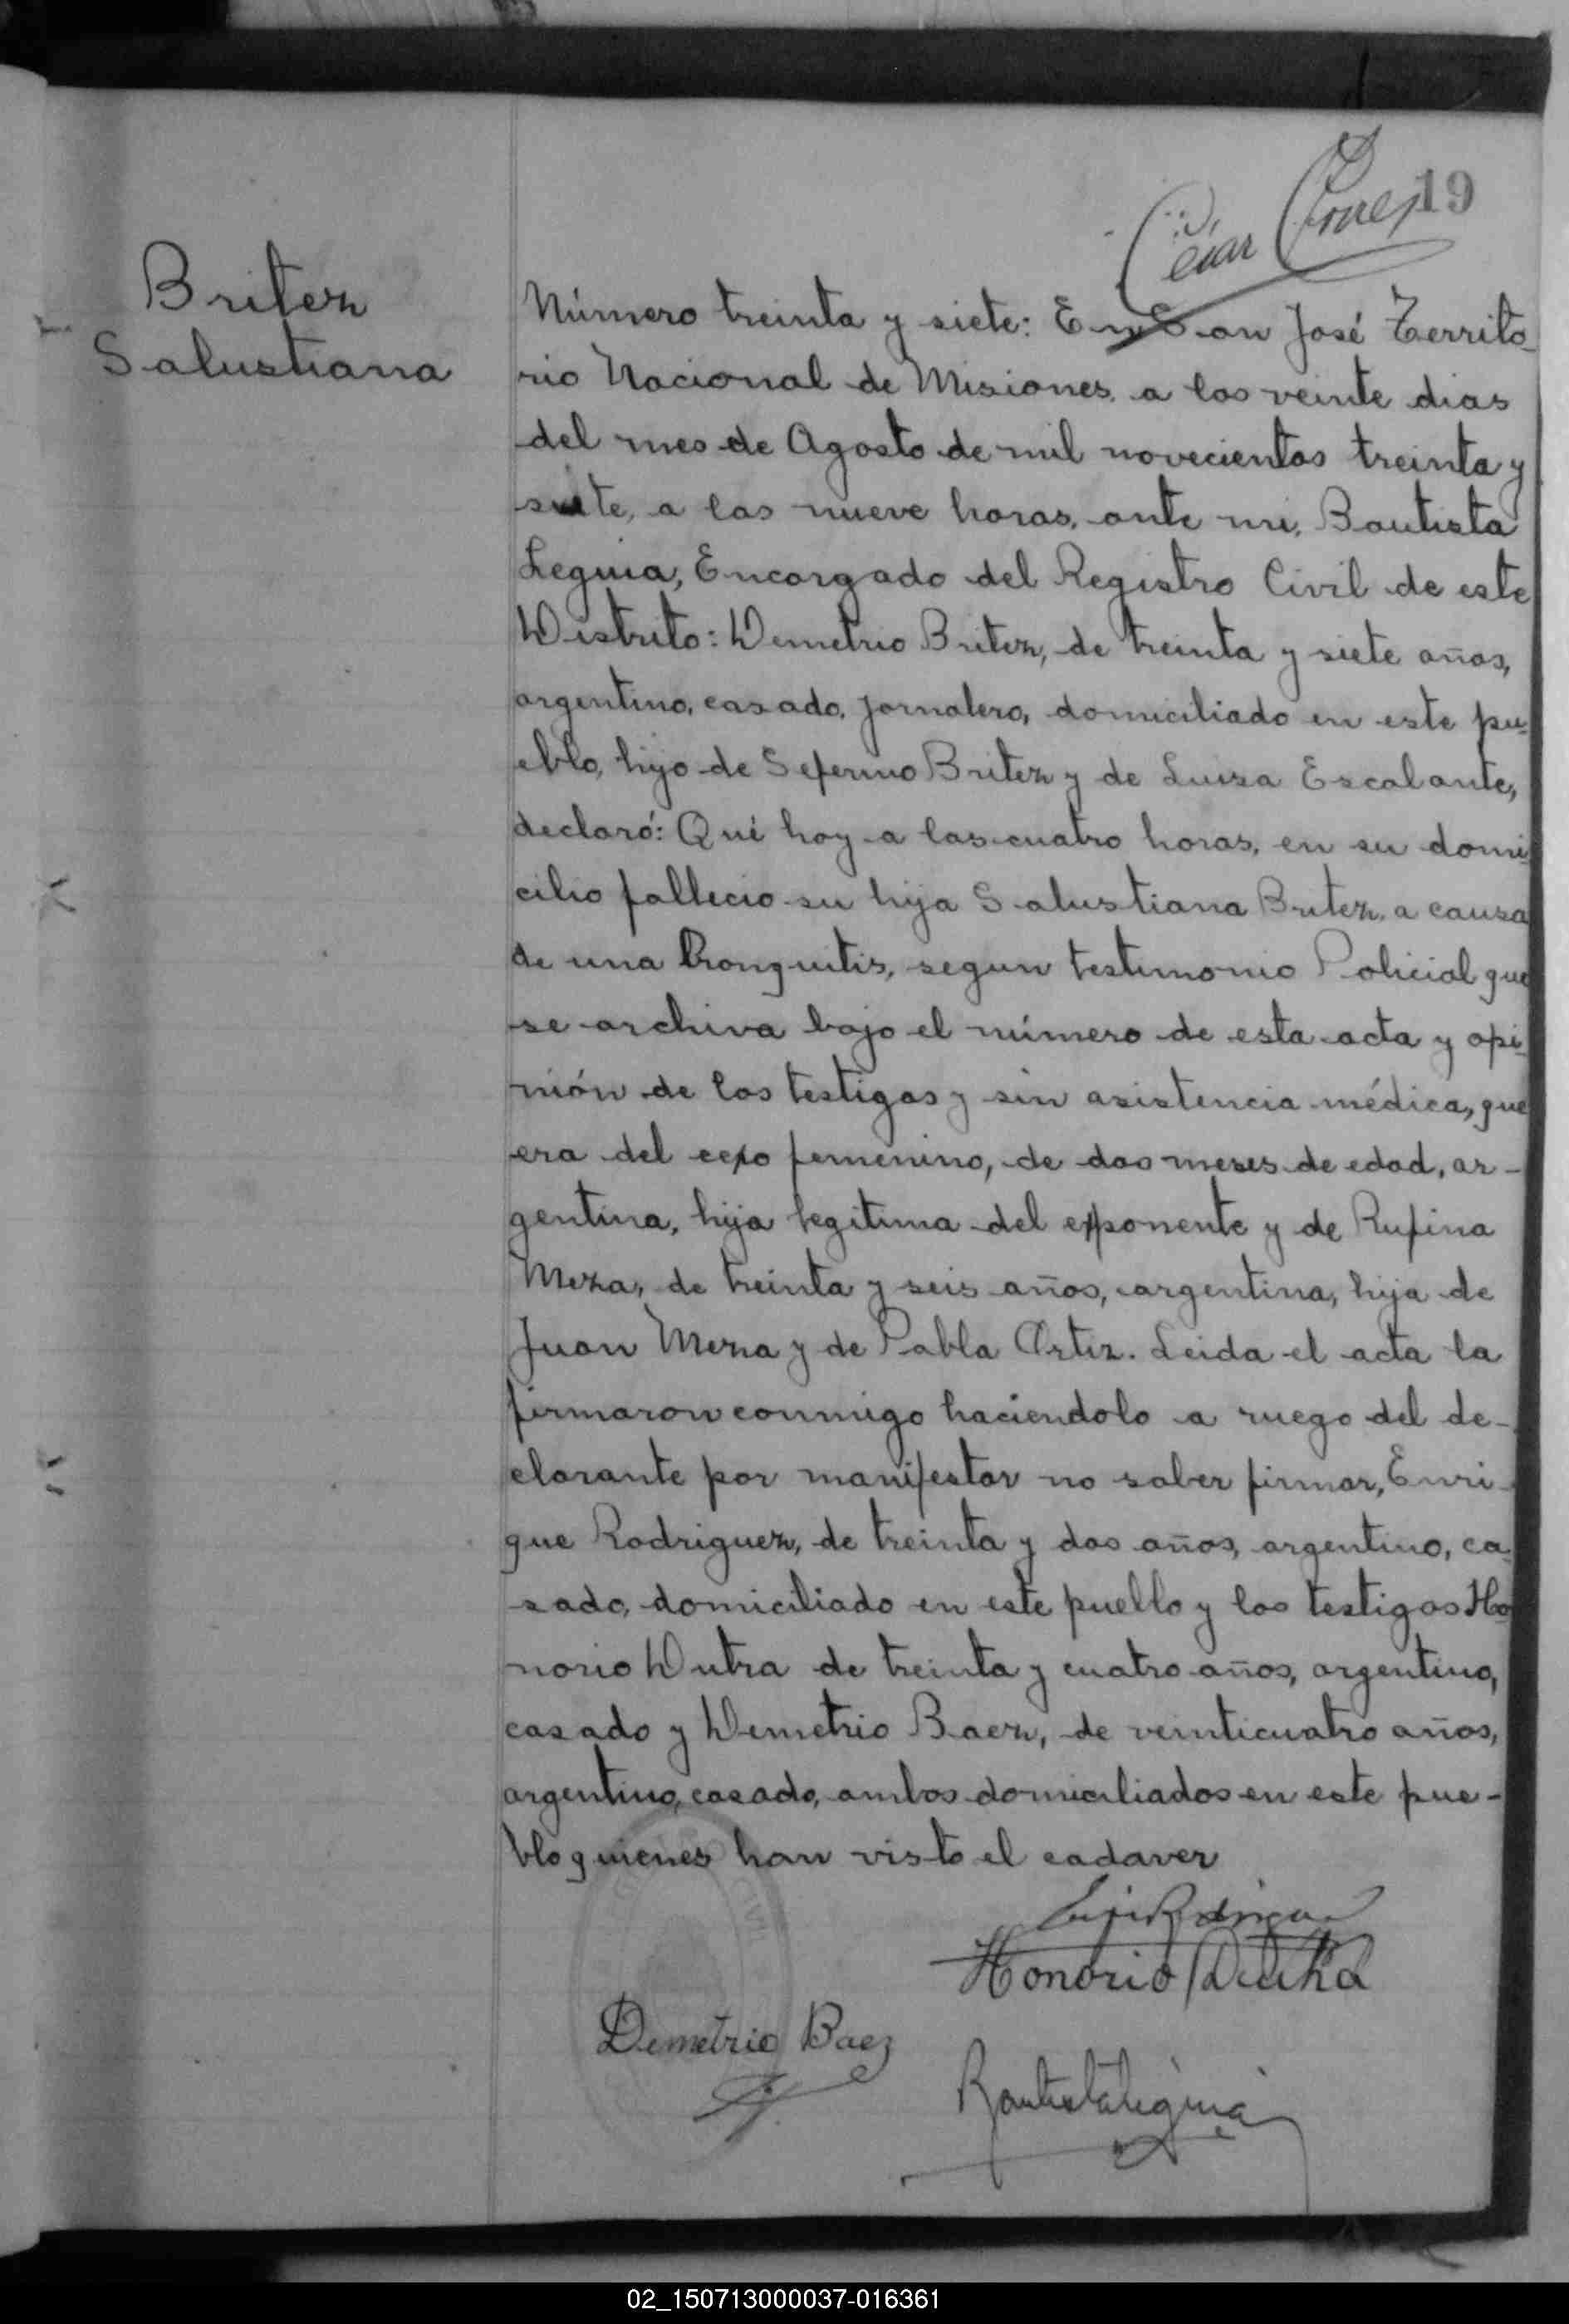 19
César Torres
Britez
Salustiana
Número treinta y siete: En San José Territo-
rio Nacional de Misiones, a los veinte dias
del mes de Agosto de mil novecientos treinta y
siete, a las nueve horas, ante mi, Bautista
Leguia, Encargado del Registro Civil de este
Distrito: Demetrio Britez, de treinta y siete años,
argentino, casado, jornalero, domiciliado en este pu-
eblo, hijo de Seferino Britez y de Luisa Escalante,
declaró: Qué hoy a las cuatro horas, en su domi-
cilio fallecio su hija Salustiana Britez, a causa
de una Bronquitis, segun testimonio Policial que
se archiva bajo el número de esta acta y opi-
nión de los testigos y sin asistencia médica, que
era del cexo femenino, de dos meses de edad, ar-
gentina, hija legitima del exponente y de Rufina
Meza, de treinta y seis años, argentina, hija de
Juan Meza y de Pabla Ortiz. Leida el acta la
firmaron conmigo haciendolo a ruego del de-
clarante por manifestar no saber firmar, Enri-
que Rodriguez, de treinta y dos años, argentino, ca-
sado, domiciliado en este pueblo y los testigos Ho-
norio Dutra de treinta y cuatro años, argentino,
casado y Demetrio Baez, de veinticuatro años,
argentino, casado, ambos domiciliados en este pue-
blo quienes han visto el cadaver
Honorio Dutra
Demetrio Baez
Bautista Leguia
02_150713000037-016361